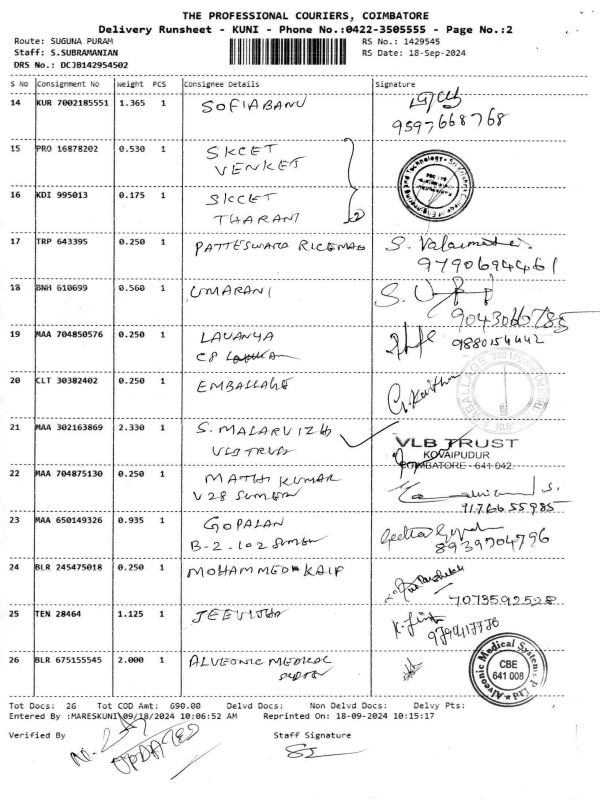 THE PROFESSIONAL COURIERS, COIMBATORE
Delivery Runsheet - KUNI - Phone No.:0422-3505555 - Page No.:2
Route: SUGUNA PURAM RS No.: 1429545
Staff: S.SUBRAMANIAN RS Date: 18-Sep-2024
DRS No.: DCJB142954502
S No Consignment No Weight PCS Consignee Details Signature
14 KUR 7002185551 1.365 1 SOFIABANU
9597668768
15 PRO 16878202 0.530 1 SKCET
VENKET
16 KDI 995013 0.175 1 SKCET
THARANI 2
17 TRP 643395 0.250 1 PATTESWARA RICEMAD S. Valarmathi
9790694461
18 BNH 610699 0.560 1 UMARANI S.
9043060785
19 MAA 704850576 0.250 1 LAVANYA 9880154442
C8
20 CLT 30382402 0.250 1 EMBALLAGE G. Kavitha
21 MAA 302163869 2.330 1 S. MALARVIZH
VLB TRUST
VLB TRUST
KOVAIPUDUR
COIMBATORE - 641 042
22 MAA 704875130 0.250 1 MATHI KUMAR
V28 SUMEN
9176655985
23 MAA 650149326 0.935 1 GOPALAN Geetha Gopalan
B-2.102 SUMEN 8939704796
24 BLR 245475018 0.250 1 MOHAMMED KAIF
7073592528
25 TEN 28464 1.125 1 JEEVITHA
26 BLR 675155545 2.000 1 ALVEONIC MEDICAL
Alveonic Medical Systems P Ltd
CBE
641 008
Tot Docs: 26 Tot COD Amt: 690.00 Delvd Docs: Non Delvd Docs: Delvy Pts:
Entered By :MARESKUNI 09/18/2024 10:06:52 AM Reprinted On: 18-09-2024 10:15:17
Verified By Staff Signature
UPDATED